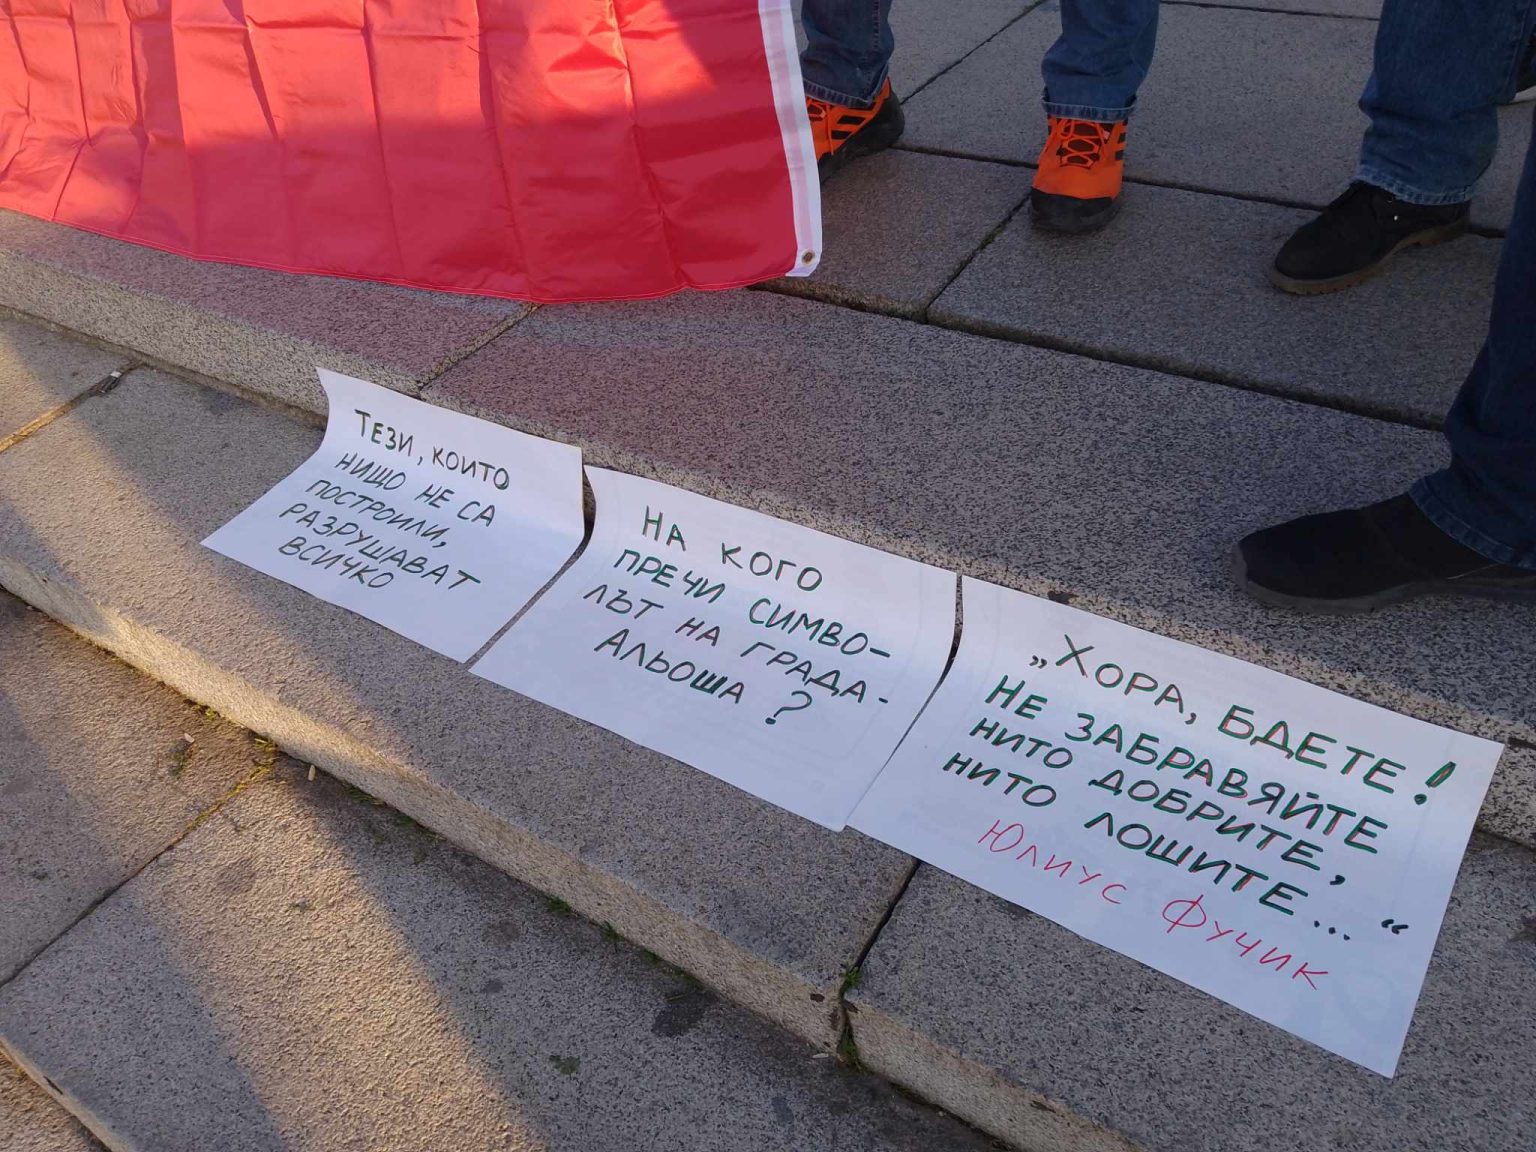 Тези, които
нищо не са
построили,
разрушават
всичко
На кого
пречи симво-
лът на града -
Альоша ?
„Хора, бдете!
Не забравяйте
нито добрите,
нито лошите..."
Юлиус Фучик